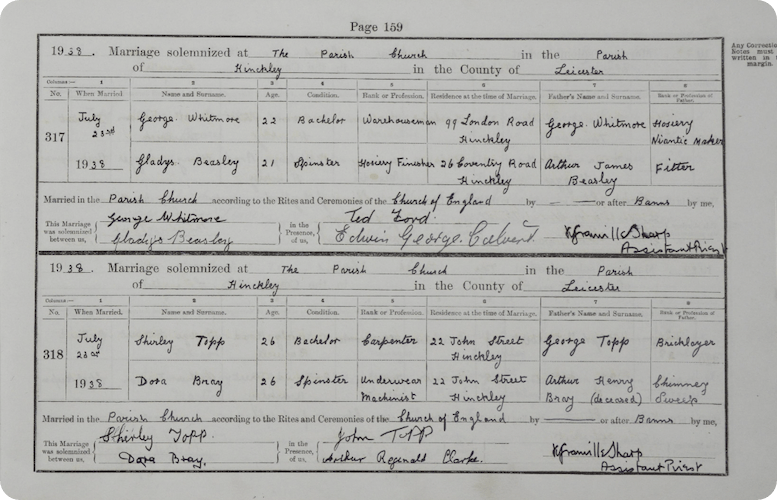 Page 159
1938. Marriage solemnized at The Parish Church in the Parish
of Hinckley in the County of Leicester
Columns:— 1 2 3 4 5 6 7 8
No. When Married. Name and Surname. Age. Condition. Rank or Profession. Residence at the time of Marriage. Father's Name and Surname. Rank or Profession of Father.
317 July 23rd 1938 George Whitmore 22 Bachelor Warehouseman 99 London Road Hinckley George Whitmore Hosiery Maker
Gladys Beasley 21 Spinster Hosiery Finisher 26 Coventry Road Hinckley Arthur James Beasley Fitter
Married in the Parish Church according to the Rites and Ceremonies of the Church of England by — or after Banns by me,
This Marriage was solemnized between us, George Whitmore Gladys Beasley in the Presence of us, Ted Ford Edwin George Calvert Sharp Assistant Priest
1938. Marriage solemnized at The Parish Church in the Parish
of Hinckley in the County of Leicester
Columns:— 1 2 3 4 5 6 7 8
No. When Married. Name and Surname. Age. Condition. Rank or Profession. Residence at the time of Marriage. Father's Name and Surname. Rank or Profession of Father.
318 July 23rd 1938 Shirley Topp 26 Bachelor Carpenter 22 John Street Hinckley George Topp Bricklayer
Dora Bray 26 Spinster Underwear Machinist 22 John Street Hinckley Arthur Henry Bray (deceased) Chimney Sweep
Married in the Parish Church according to the Rites and Ceremonies of the Church of England by — or after Banns by me,
This Marriage was solemnized between us, Shirley Topp Dora Bray. in the Presence of us, John Topp Arthur Reginald Clarke. Sharp Assistant Priest
Any Correctio
Notes must
written in t
margin.